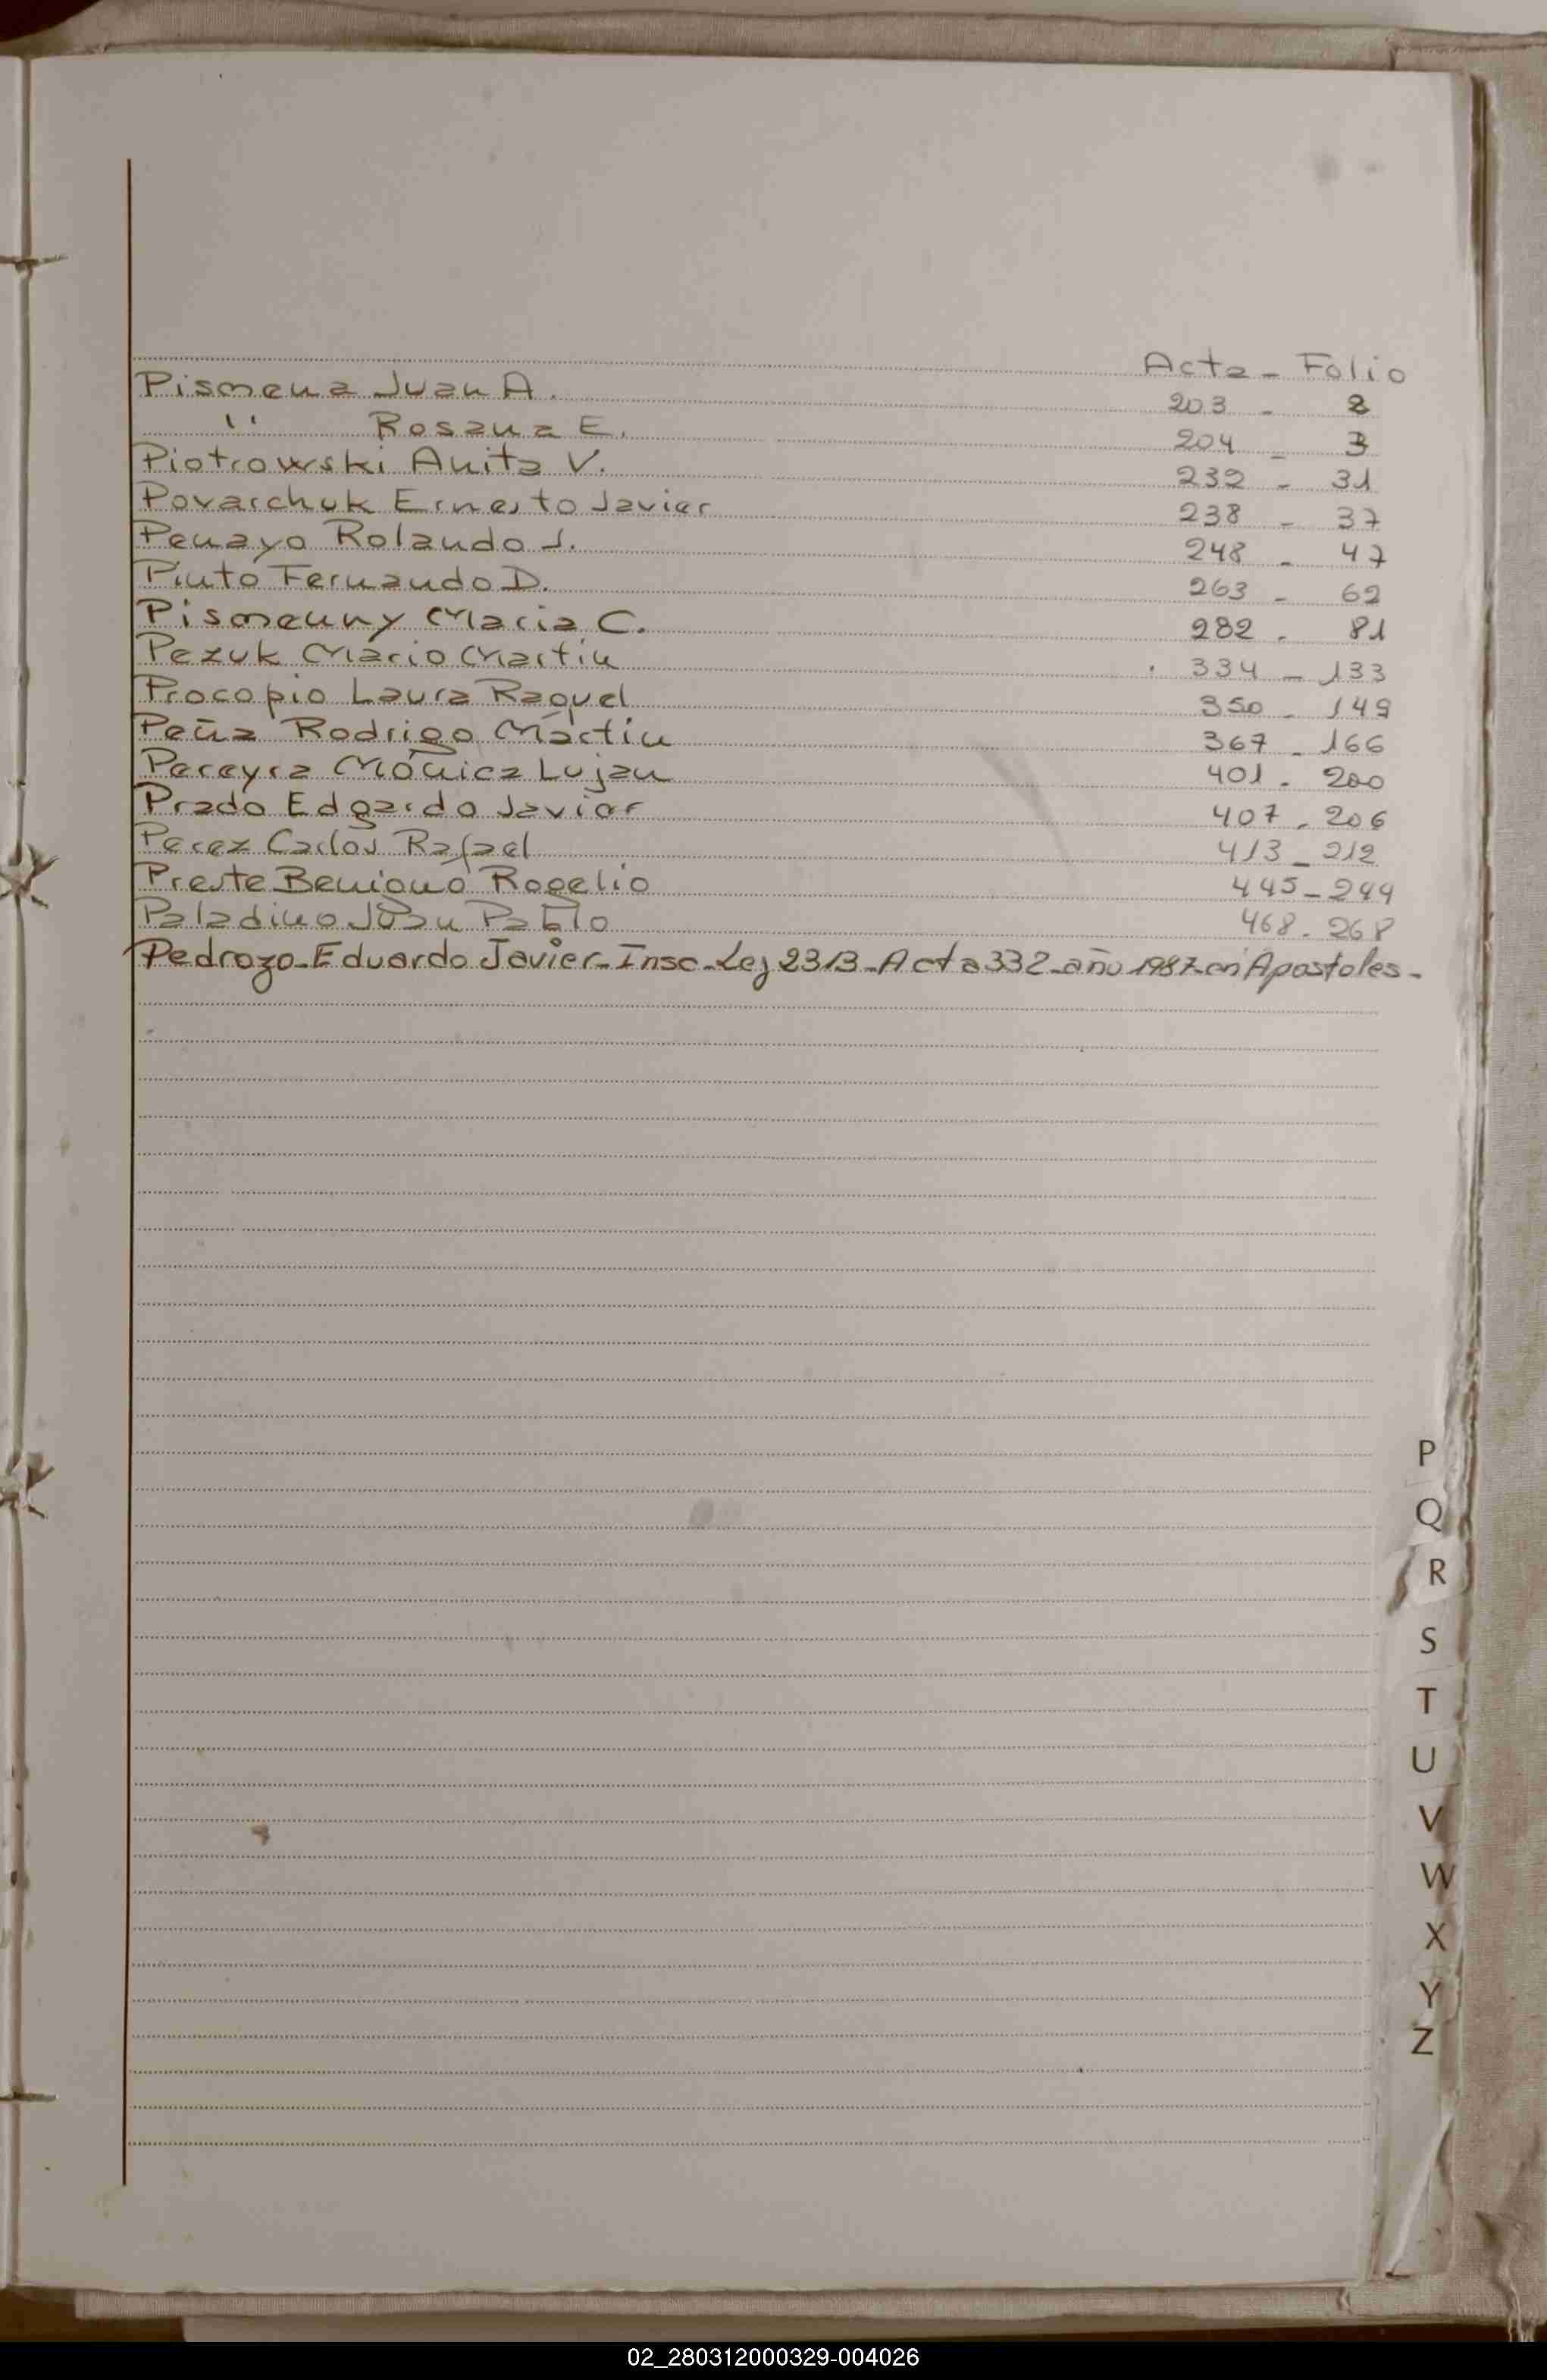 Acta - Folio
Pismena Juan A. 203 - 2
" Rosana E. 204 - 3
Piotrowski Anita V. 232 - 31
Povarchuk Ernesto Javier 238 - 37
Penayo Rolando J. 248 - 47
Pinto Fernando D. 263 - 62
Pismenny Maria C. 282 - 81
Pezuk Mario Martin 334 - 133
Procopio Laura Raquel 350 - 149
Peña Rodrigo Martin 367 - 166
Pereyra Mónica Lujan 401 - 200
Prado Edgardo Javier 407 - 206
Perez Carlos Rafael 413 - 212
Preste Benigno Rogelio 445 - 244
Paladino Juan Pablo 468 - 268
Pedrozo - Eduardo Javier - Insc - Ley 2313 - Acta 332 - año 1987 - en Apostoles -
P
Q
R
S
T
U
V
W
X
Y
Z
02_280312000329-004026